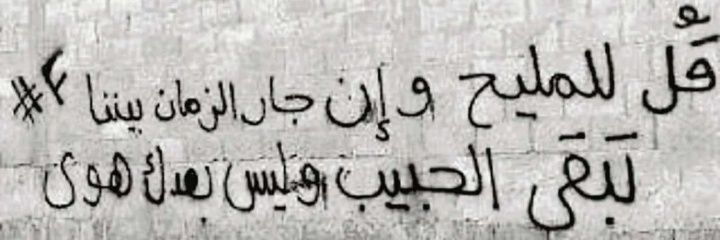 قُل للمليح وإن جار الزمان بيننا #٢
تَبقَى الحبيب وليس بعدك هوى